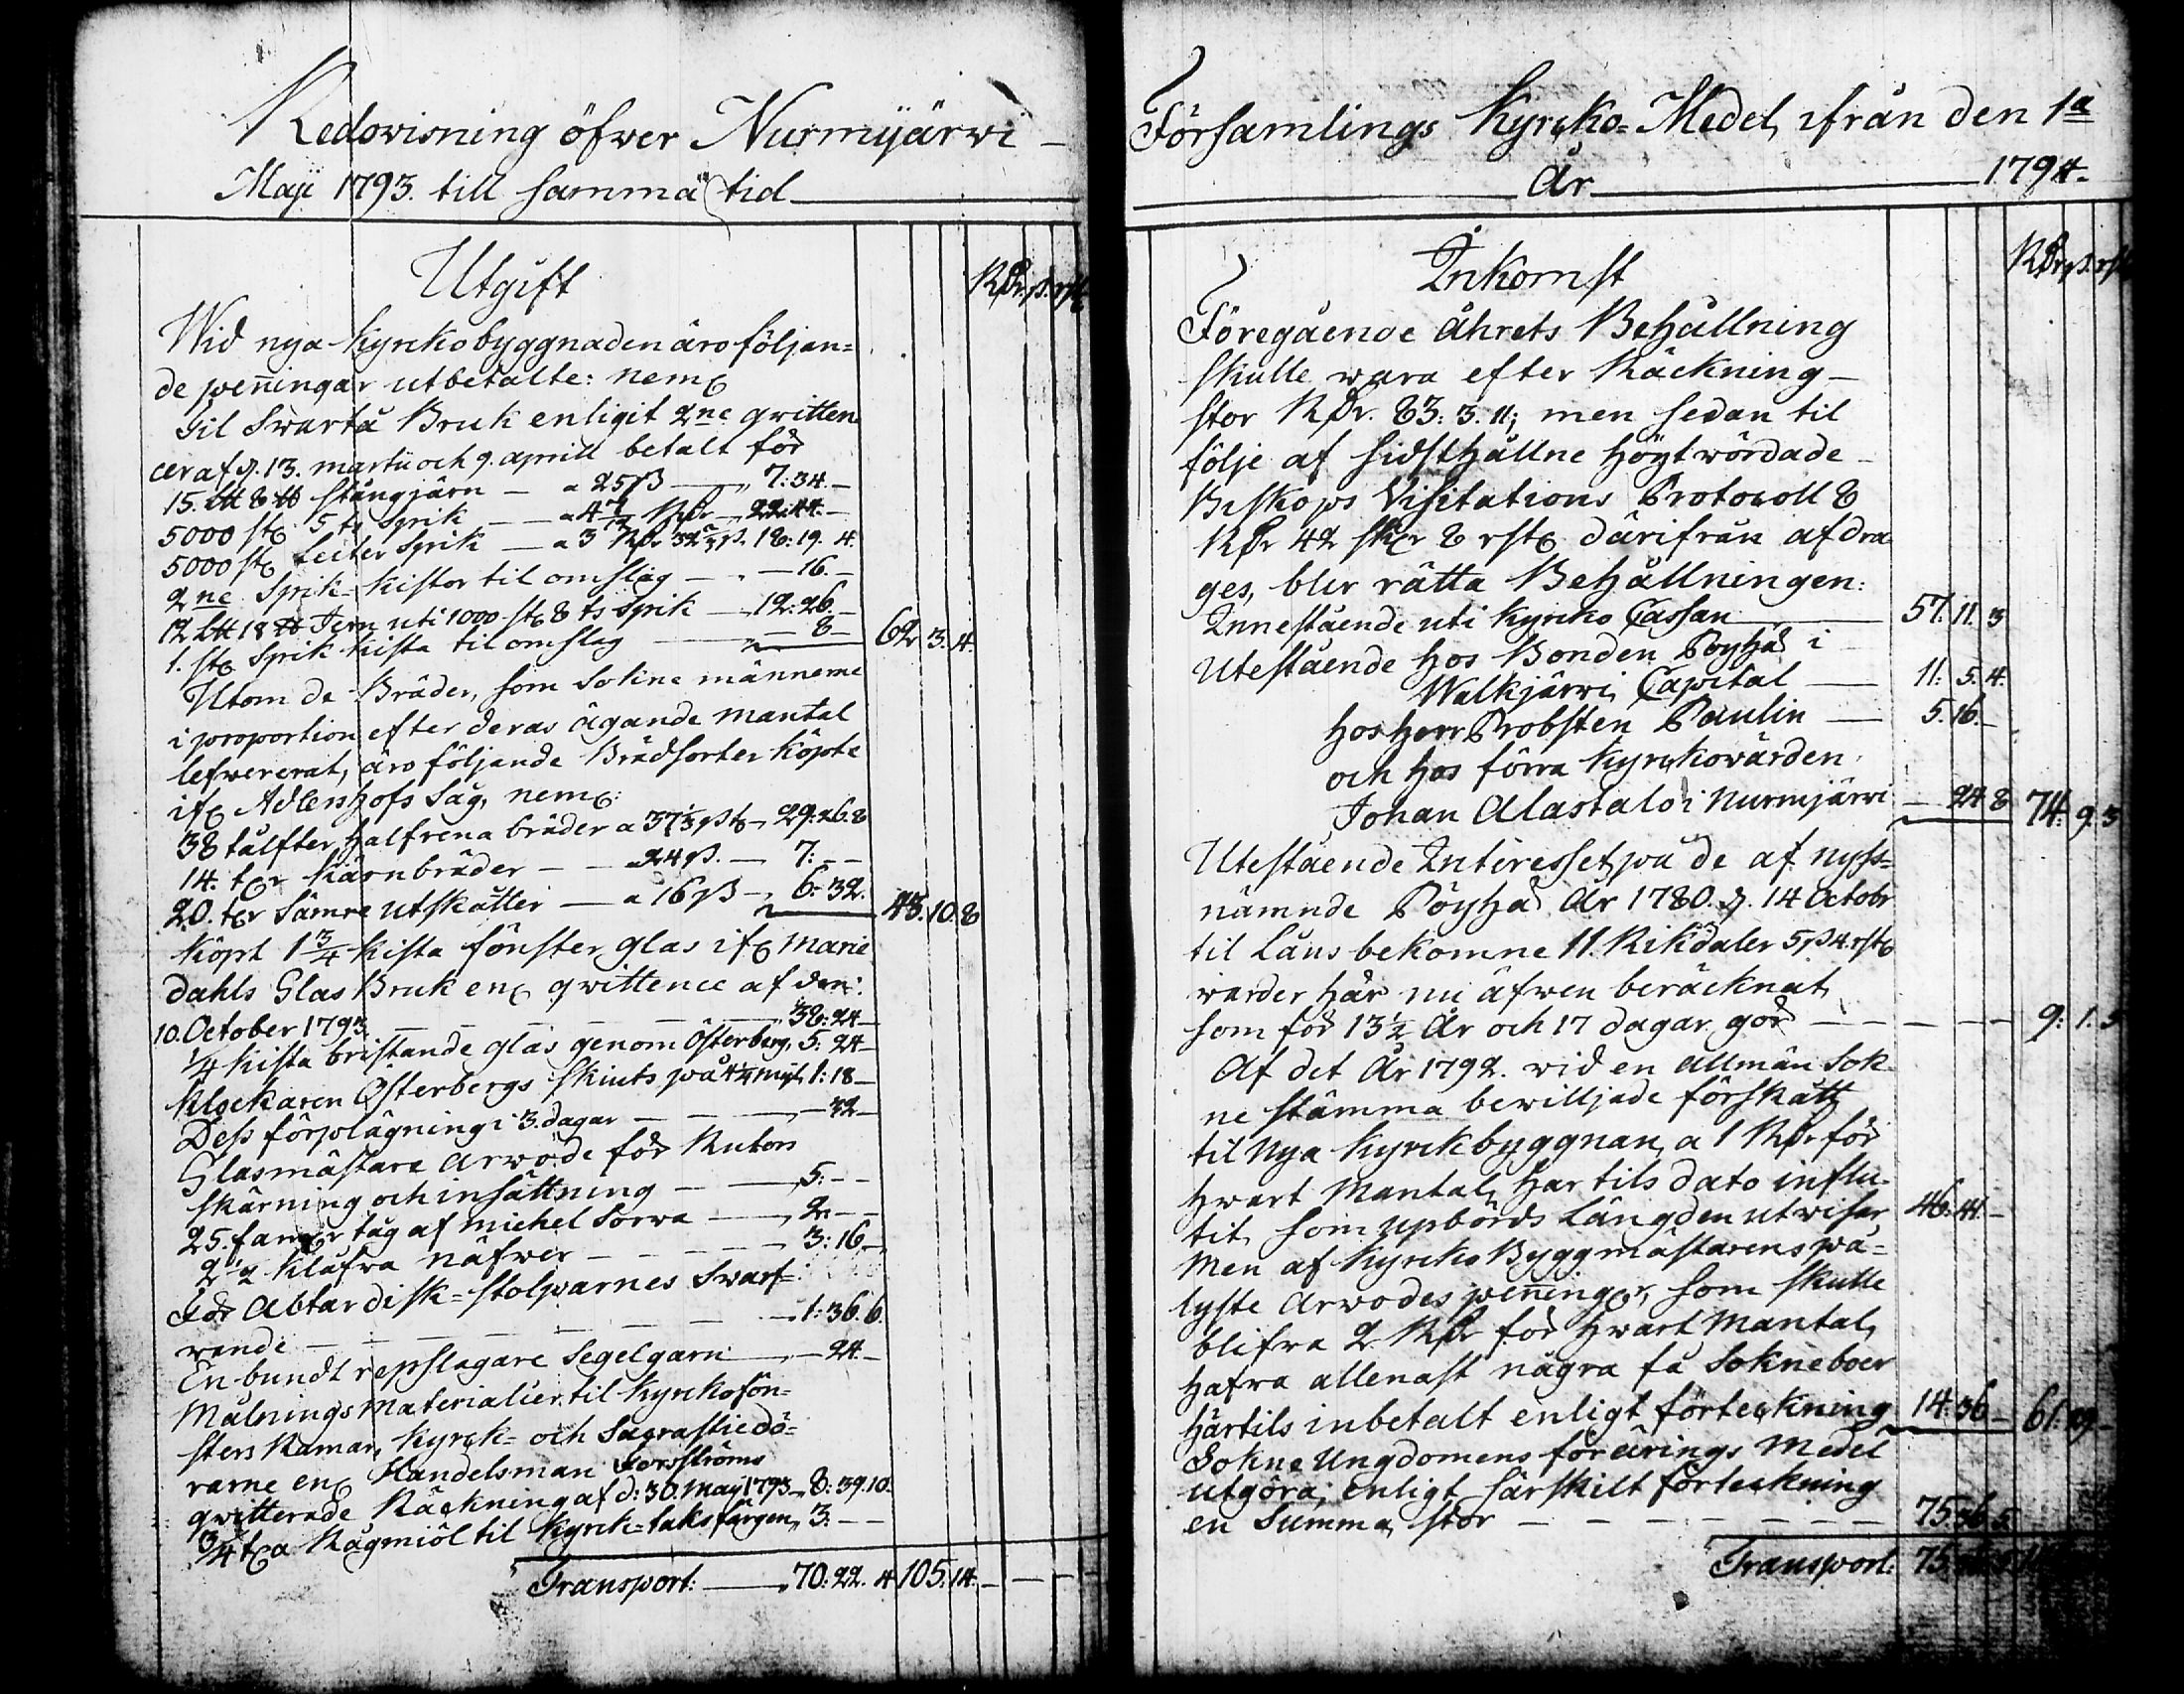 Redovisning öfver Nurmijärvi
Maji 1793. till samma tid
Utgift
RDr. ß. rst
Wid nya Kyrckobyggnaden äro följan=
de peñingar utbetalte: nemɛ
Til Swartå Bruk enligit 2ne qvitten
cer af d. 13. martii och 9. aprill betalt för
15. L℔ 8 ℔ stångjärn — a 25ß — 7: 34. —
5000 stɛ 5 ts Spik — a 4 7/12 RDr — 22: 44. —
5000 stɛ Lecter Spik — a 3 RDr 32 2/3 ß. 18: 19. 4.
2ne Spik-Kistor til omslag — — 16. —
12 L℔ 18 ℔ Jern uti 1000 stɛ 8 ts Spik — 12: 26. —
1. stɛ Spik kista til omslag — 8 — 62 3. 4.
Utom de Bräder, som Sokne männerne
i proportion efter deras ägande mantal
lefvererat, äro följande Brädsorter köpte
ifɛ Adlershofs Såg, nemɛ:
38 tålfter halfrena bräder a 37 1/3 ß tɛ 29: 26. 8
14. tɛr Kärnbräder — a 24 ß. — 7: — —
20. tɛr Sämre utskåtter — a 16 ß — 6: 32. 43. 10. 8
Köpt 1 3/4 Kista fönster glas ifɛ Marie
dahls Glas Bruk enɛ qvittence af den
10. October 1793 — 38: 24 —
1/4 Kista bristande glas genom Österberg, 5: 24 —
Klockaren Österbergs skiuts på 4 1/4 mijl, 1: 18 —
Dess förplägning i 3. dagar — — 32 —
Glasmästare Arwode för Rutors
skärning och insättning — 5: — —
25. famnar tåg af Michel Sorva — 2: — —
2 1/2 Klafva näfver — 3: 16. —
För Altardisk=stolparnes Svarf=
vande — 1: 36. 6.
En bundt repslagare Segelgarn — 24. —
Målnings Materialier til Kyrckofön=
sters Ramar, Kyrck= och Sacrastiedö=
rarne enɛ Handelsman Forsströms
qvitterade Räckning af d: 30. Maij 1793 — 8: 39. 10.
3/4 tɛa Rågmiöl til Kyrck=taksfärgen, 3. — —
Transport: — 70: 22. 4 105. 14. — — —
Församlings Kyrcko=Medel, ifrån den 1a
År 1794.
Inkomst
RDr. ß. rst
Föregående åhrets Behållning
skulle wara efter Räckning —
stor RDr. 83: 3. 11; men sedan til
följe af sidsthållne högtwördade —
Biskops Visitations Protocoll 8
RDr 42 skɛr 8 rstɛ därifrån afdra
ges, blir rätta Behållningen:
Innestående uti Kyrcko Cassan 57. 11. 3
Utestående hos Bonden Pöyhä i
Walkjärvi, Capital — 11: 5. 4.
hos Herr Probsten Paulin — 5. 16. —
och hos förra Kyrckovärden
Johan Alastalo i Nurmjärvi — 24 8 74. 9. 3
Utestående Interesset på de af nyss=
nämnde Pöyhä År 1780. d. 14 Octobr
til Låns bekomne 11. Rikdaler 5 ß 4. rstɛ
warder här nu äfwen beräcknat,
som för 13 1/2 År och 17 dagar gör — 9: 1. 3
Af det År 1792. wid en allmän Sok
ne stämma bewilljade förskått
til Nya Kyrckbyggnan, a 1 RDr för
hwart Mantal, har tils dato influ=
tit, som upbörds Längden utwisar, 46. 41. —
Men af Kyrcko Byggmästarens på=
lyste Arvodes peñingar, som skulle
blifva 2 RDr för hwart Mantal,
hafva allenast några få Sokneboer
härtils inbetalt enligt förteckning 14. 36 — 61. 29 —
Sokne Ungdomens förärings Medel
utgöra; enligt särskilt förteckning
en Summa, stor — 75. 36 5
Transport: 75.